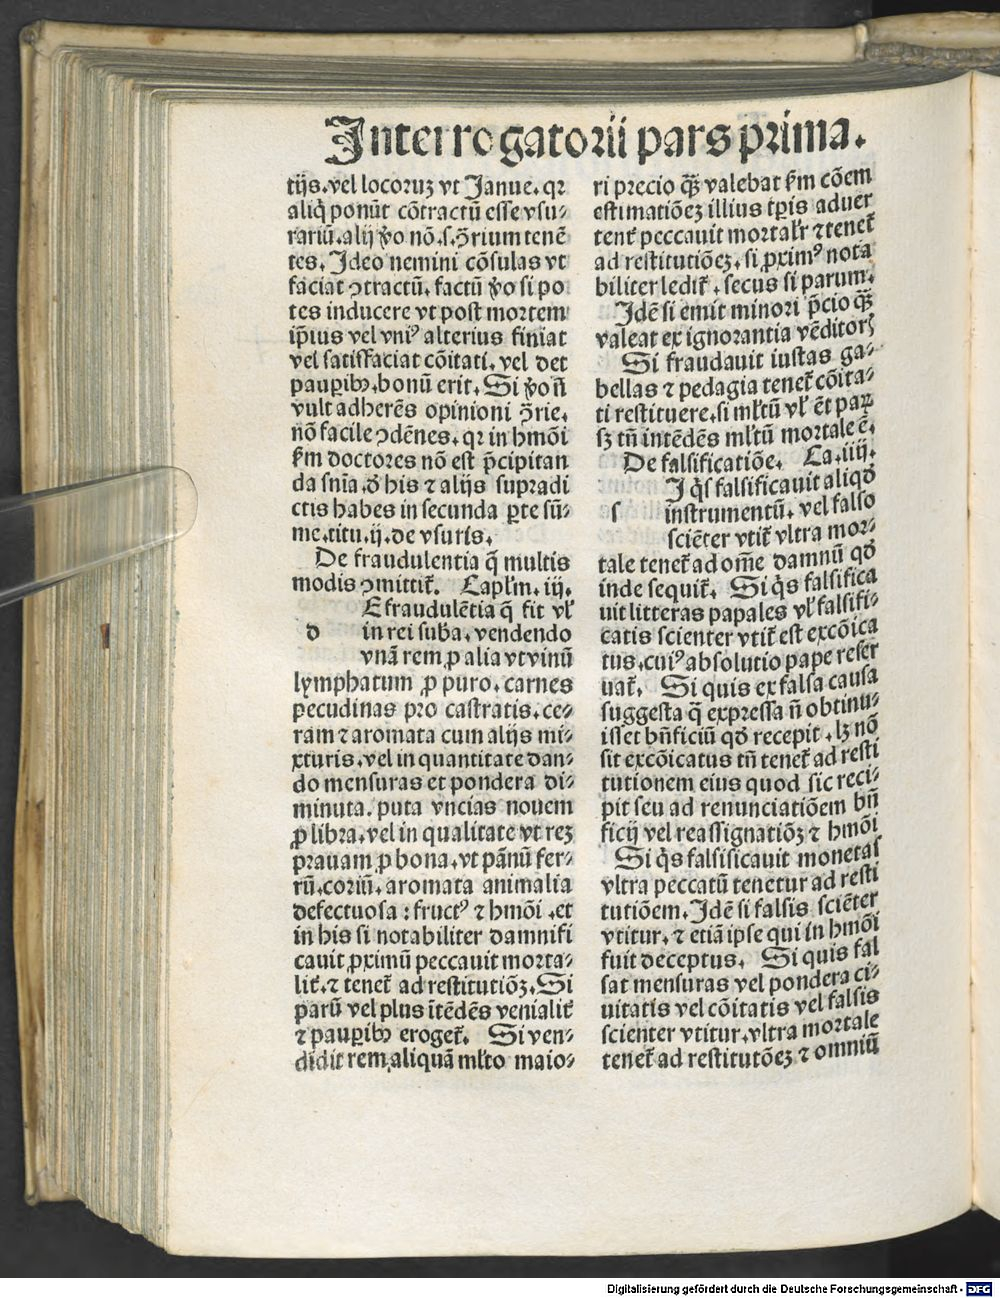 Interrogatorii pars prima.
tijs. vel locoruȝ vt Janue. qꝛ
aliq̇ ponūt cōtractū esse vsu⸗
rariū. alij ꝟo nō. s. ꝯ̄rium tenē
tes. Ideo nemini cōsulas vt
faciat ꝯtractū. factū ꝟo si po
tes inducere vt post mortem
ip̄ius vel vniꝰ alterius finiat
vel satisfaciat cōitati. vel det
paup̲ibꝫ. bonū erit. Si ꝟo n̄
vult adherēs opinioni ꝯ̄rie.
nō facile ꝯdēnes. qꝛ in hmōi
ẜm doctores nō est p̄cipitan
da snīa. ð his ⁊ alijs supradi
ctis habes in secunda ꝑte sū⸗
me. titu. ij. de vsuris.
De fraudulentia q̄ multis
modis ꝯmittit᷑. Capl̓m. iij.
E fraudulētia q̄ fit vl̓
d in rei suba. vendendo
vnā rem ꝓ alia vt vinū
lymphatum ꝓ puro. carnes
pecudinas pro castratis. ce⸗
ram ⁊ aromata cum alijs mi⸗
xturis. vel in quantitate dan⸗
do mensuras et pondera di⸗
minuta. puta vncias nouem
ꝓ libra. vel in qualitate vt reȝ
prauam ꝓ bona. vt pānū fer⸗
rū. coriū. aromata animalia
defectuosa : fructꝰ ⁊ hmōi . et
in his si notabiliter damnifi
cauit ꝓximū peccauit morta⸗
lit᷑. ⁊ tenet᷑ ad restitutiōȝ. Si
parū vel plus ītēdēs venialit᷑
⁊ paup̲ibꝫ eroget᷑. Si ven⸗
didit rem aliquā ml̓to maio⸗
ri precio q̄ȝ valebat ẜm cōem
estimatiōeȝ illius tp̄is aduer
tent᷑ peccauit mortal̓r ⁊ tenet᷑
ad restitutiōeȝ. si ꝓximꝰ nota
biliter ledit᷑. secus si parum.
Idē si emit minori p̄cio q̄ȝ
valeat ex ignorantia vēditorꝭ
Si fraudauit iustas ga⸗
bellas ⁊ pedagia tenet᷑ cōita⸗
ti restituere. si ml̓tū vl̓ ēt paꝝ
sȝ tn̄ intēdēs ml̓tū mortale ē.
De falsificatiōe. Ca. iiij.
I q̇s falsificauit aliqð
s instrumentū. vel falso
sciēter vtit᷑ vltra mor⸗
tale tenet᷑ ad om̄e damnū qð
inde sequit᷑. Si q̇s falsifica
uit litteras papales vl̓ falsifi⸗
catis scienter vtit᷑ est excōica
tus. cuiꝰ absolutio pape reser
uat᷑. Si quis ex falsa causa
suggesta q̄ expressa n̄ obtinu⸗
isset bn̄ficiū qð recepit . lȝ nō
sit excōicatus tn̄ tenet᷑ ad resti
tutionem eius quod sic reci⸗
pit seu ad renunciatiōem bn̄
ficij vel reassignatiōȝ ⁊ hmōi
Si q̇s falsisicauit monetas
vltra peccatū tenetur ad resti
tutiōem. Idē si falsis sciēter
vtitur. ⁊ etiā ipse qui in hmōi
fuit deceptus. Si quis fal
sat mensuras vel pondera ci⸗
uitatis vel cōitatis vel falsis
scienter vtitur. vltra mortale
tenet᷑ ad restitutōeȝ ⁊ omniū
Digitalisierung gefördert durch die Deutsche Forschungsgemeinschaft - DFG